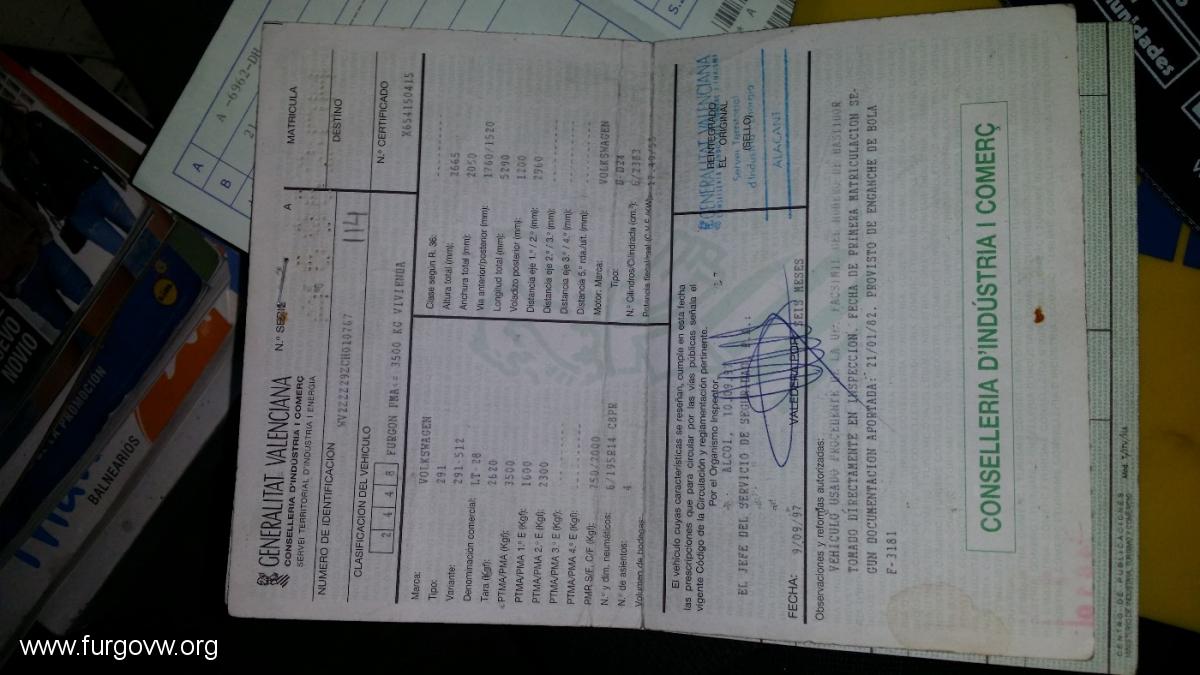 GENERALITAT VALENCIANA
CONSELLERIA D'INDÚSTRIA I COMERÇ
SERVEI TERRITORIAL D'INDÚSTRIA I ENERGIA
N.º SERIE
A
MATRICULA
NUMERO DE IDENTIFICACIÓN
WV2ZZZ29ZCH010767
DESTINO
CLASIFICACIÓN DEL VEHICULO
114
2 4 4 8 FURGON PMA<= 3500 KG VIVIENDA
N.º CERTIFICADO
X654150415
Marca: VOLKSWAGEN
Tipo: 291
Variante: 291-512
Denominación comercial: LT 28
Tara (Kgf): 2620
PTMA/PMA (Kgf): 3500
PTMA/PMA 1.º E (Kgf): 1600
PTMA/PMA 2.º E (Kgf): 2300
PTMA/PMA 3.º E (Kgf): -------
PTMA/PMA 4.º E (Kgf): -------
PMR S/F, C/F (Kgf): 750/2000
N.º y dim. neumáticos: 6/195R14 C8PR
N.º de asientos: 4
Volumen de bodegas:
Clase según R. 36: --------
Altura total (mm): 2665
Anchura total (mm): 2050
Via anterior/posterior (mm): 1760/1520
Longitud total (mm): 5290
Voladizo posterior (mm): 1200
Distancia eje 1.º / 2.º (mm): 2960
Distancia eje 2.º / 3.º (mm): --------
Distancia eje 3.º / 4.º (mm): --------
Distancia 5.ª rda./ult. (mm): --------
Motor: Marca: VOLKSWAGEN
Tipo:
N.º Cilindros/Cilindrada (cm.³): 6/2383
El vehículo cuyas características se reseñan, cumple en esta fecha
las prescripciones que para circular por las vías públicas señala el
vigente Código de la Circulación y reglamentación pertinente.
Por el Organismo Inspector.
ALCOI,
EL JEFE DEL SERVICIO DE
FECHA: 9/09/97
SEIS MESES
GENERALITAT VALENCIANA
REINTEGRADO
EL ORIGINAL
(SELLO)
Servei Territorial
ALACANT
Observaciones y reformas autorizadas:
VEHICULO USADO PROCEDENTE DE LA UE. FACSIMIL DEL NUMERO DE BASTIDOR
TOMADO DIRECTAMENTE EN INSPECCION. FECHA DE PRIMERA MATRICULACION SE-
GUN DOCUMENTACION APORTADA: 21/01/82. PROVISTO DE ENGANCHE DE BOLA
F-3181
CONSELLERIA D'INDÚSTRIA I COMERÇ
CENTRO DE PUBLICACIONES
A -6962-DH
A
B
21
NUEVO
NOVIO
PROMOCIÓN
BALNEARIOS
unidades
www.furgovw.org